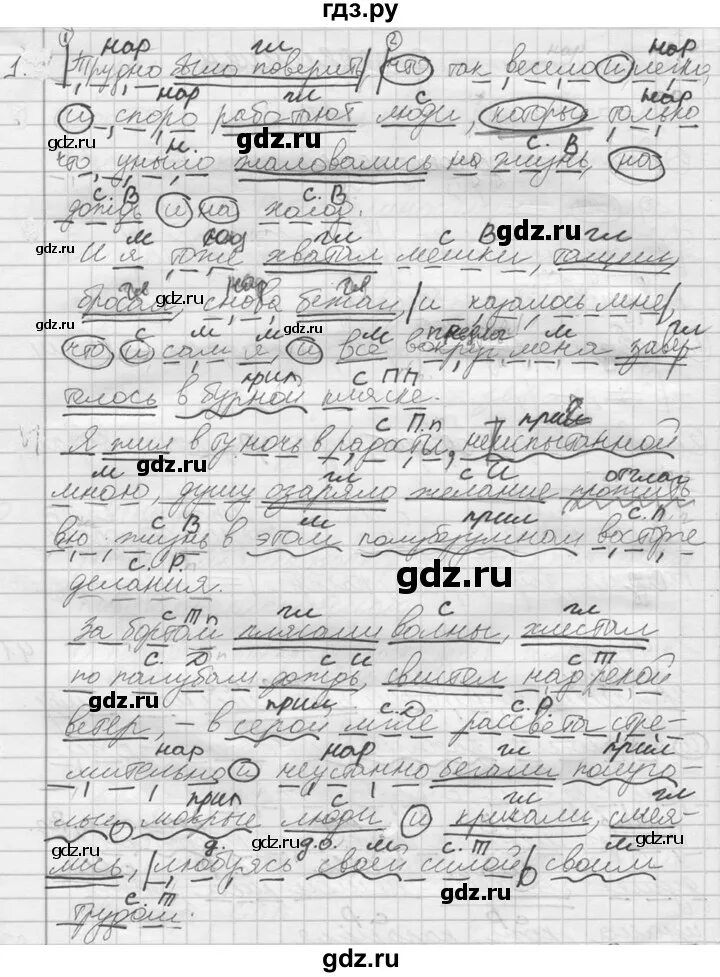 гдз.ру
1. Трудно было поверить, что так весело и легко,
и споро работают люди, которые только
что уныло жаловались на жизнь, на
дождь и на холод.
И я тоже хватал мешки, тащил,
бросал, снова бежал, и казалось мне,
что и сам я, и всё вокруг меня завер-
телось в бурной пляске.
Я жил в ту ночь в радости, неиспытанной
мною, душу озаряло желание прожить
всю жизнь в этом полубезумном восторге
делания.
За бортом плясали волны, хлестал
по палубам дождь, свистел над рекой
ветер, – в серой мгле рассвета стре-
мительно и неустанно бегали полуго-
лые, мокрые люди и кричали, смея-
лись, любуясь своей силой, своим
трудом.
gdz.ru